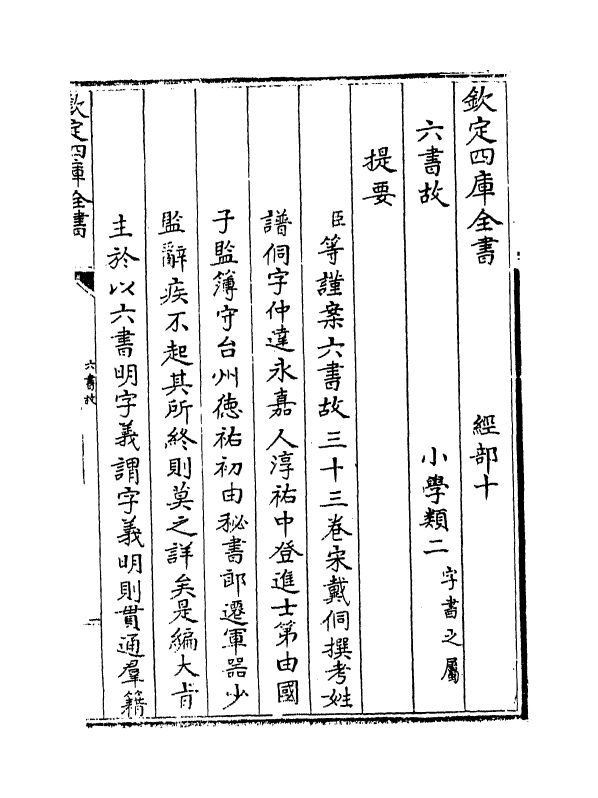 欽定四庫全書　經部十
六書故　小學類二字書之屬
提要
臣等謹案六書故三十三卷宋戴侗撰考姓
譜侗字仲達永嘉人淳祐中登進士第由國
子監簿守台州德祐初由秘書郎遷軍器少
監辭疾不起其所終則莫之詳矣是編大㫖
主於以六書明字義謂字義明則貫通羣籍
欽定四庫全書
六書故
一